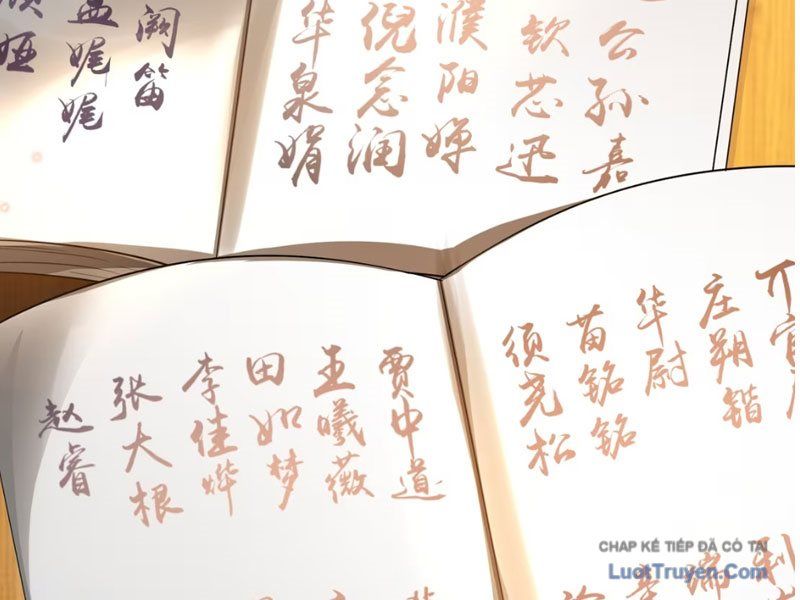 公孙嘉
钦芯迅
濮阳婵
倪念润
华泉娟
阙笛
孟娓娓
庄朔锴
华尉
苗铭铭
须尧松
贾中道
王曦薇
田如梦
李佳烨
张大根
赵睿
CHAP KẾ TIẾP ĐÃ CÓ TẠI
LuotTruyen.Com